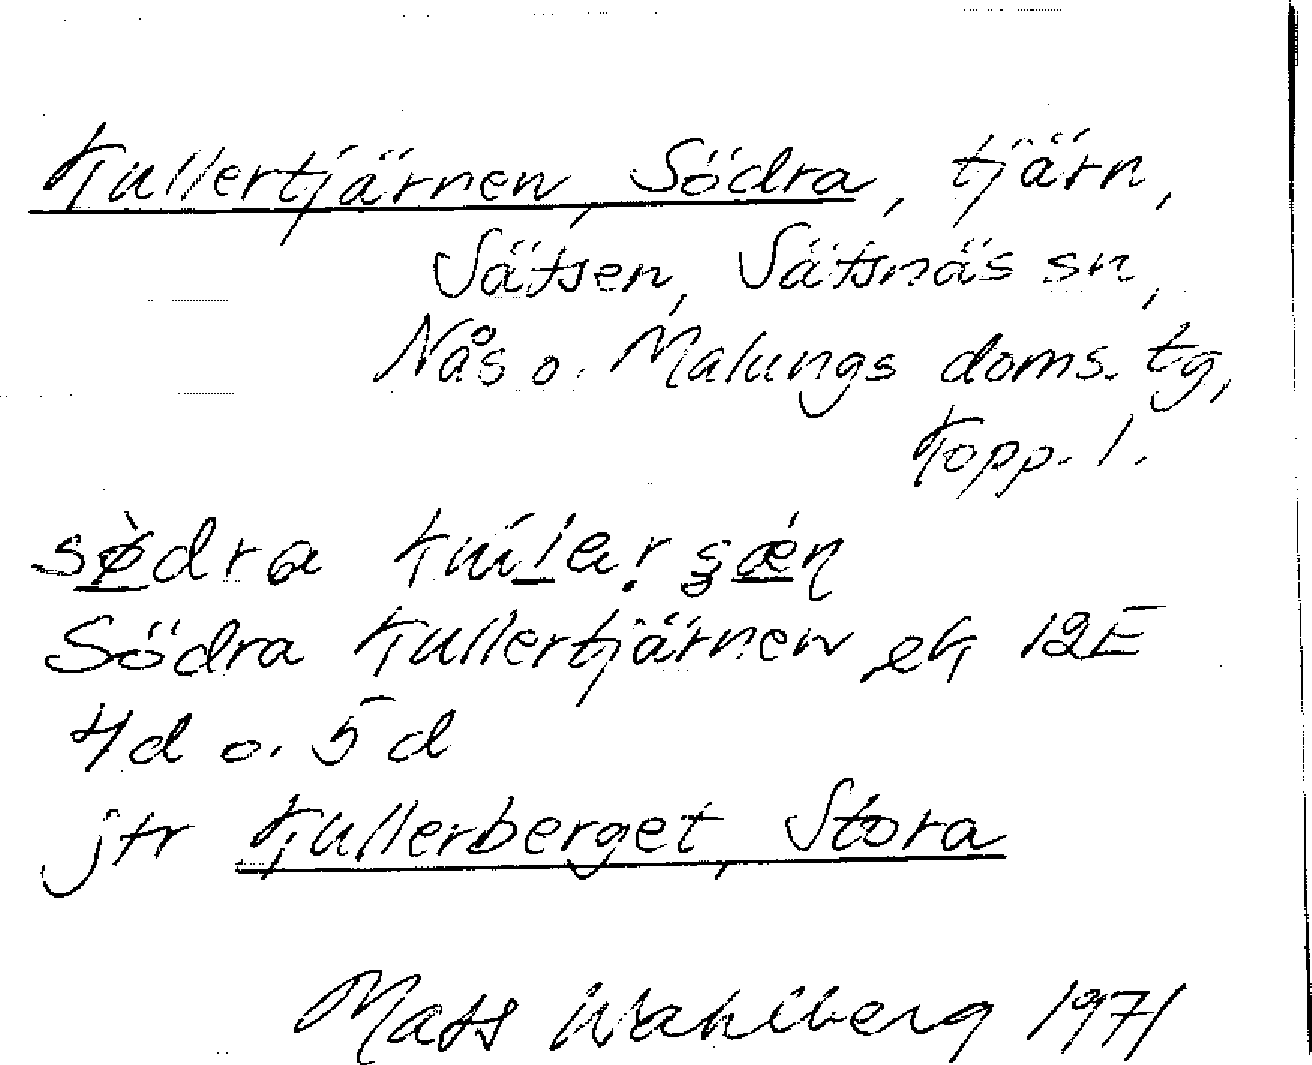 Kullertjärnen, Södra, tjärn,
Sätsen, Sätsnäs sn,
Nås o. Malungs doms. tg,
Kopp. l.
sø̀dra
Södra Kullertjärnen ek 12E
4d o. 5d
jfr Kullerberget, Stora
Mats Wahlberg 1971